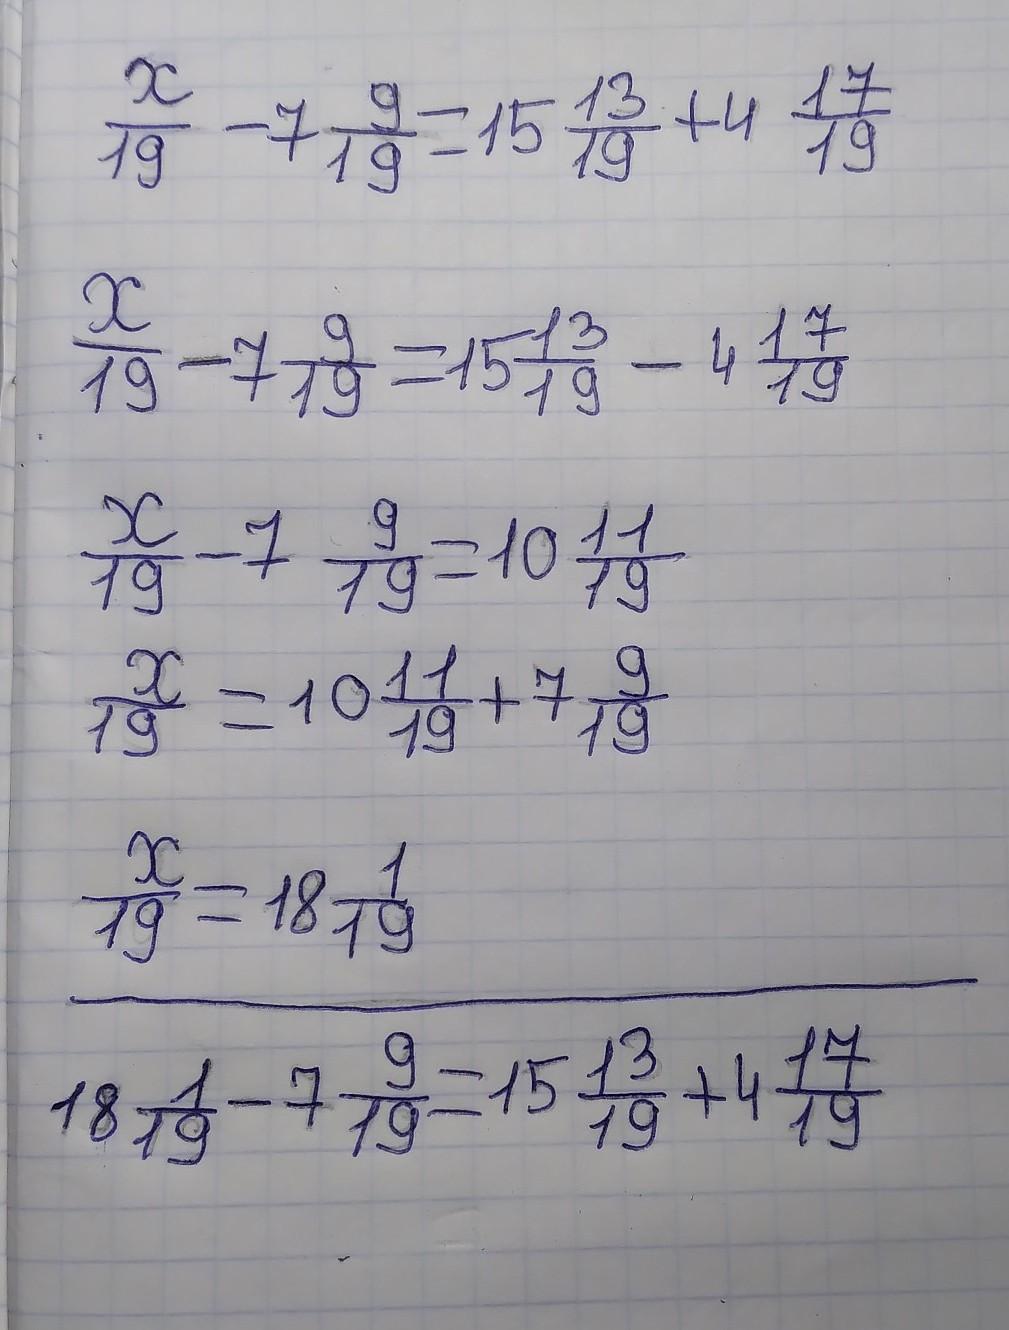 x/19 - 7 9/19 = 15 13/19 + 4 17/19
x/19 - 7 9/19 = 15 13/19 - 4 17/19
x/19 - 7 9/19 = 10 11/19
x/19 = 10 11/19 + 7 9/19
x/19 = 18 1/19
18 1/19 - 7 9/19 = 15 13/19 + 4 17/19